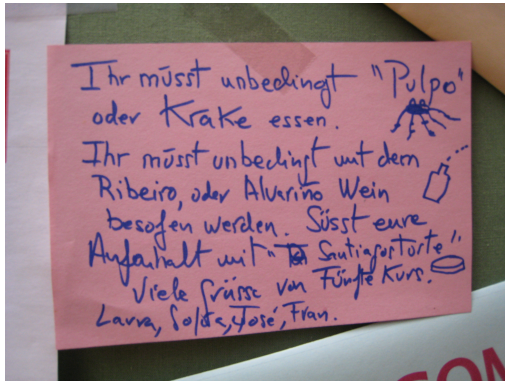 Ihr müsst unbedingt "Pulpo"
oder Krake essen.
Ihr müsst unbedingt mit dem
Ribeiro, oder Alvariño Wein
besofen werden. Süsst eure
Aufenhalt mit " Santiagostorte!"
Viele Grüsse von Fünfte Kurs.
Laura, José, Fran.